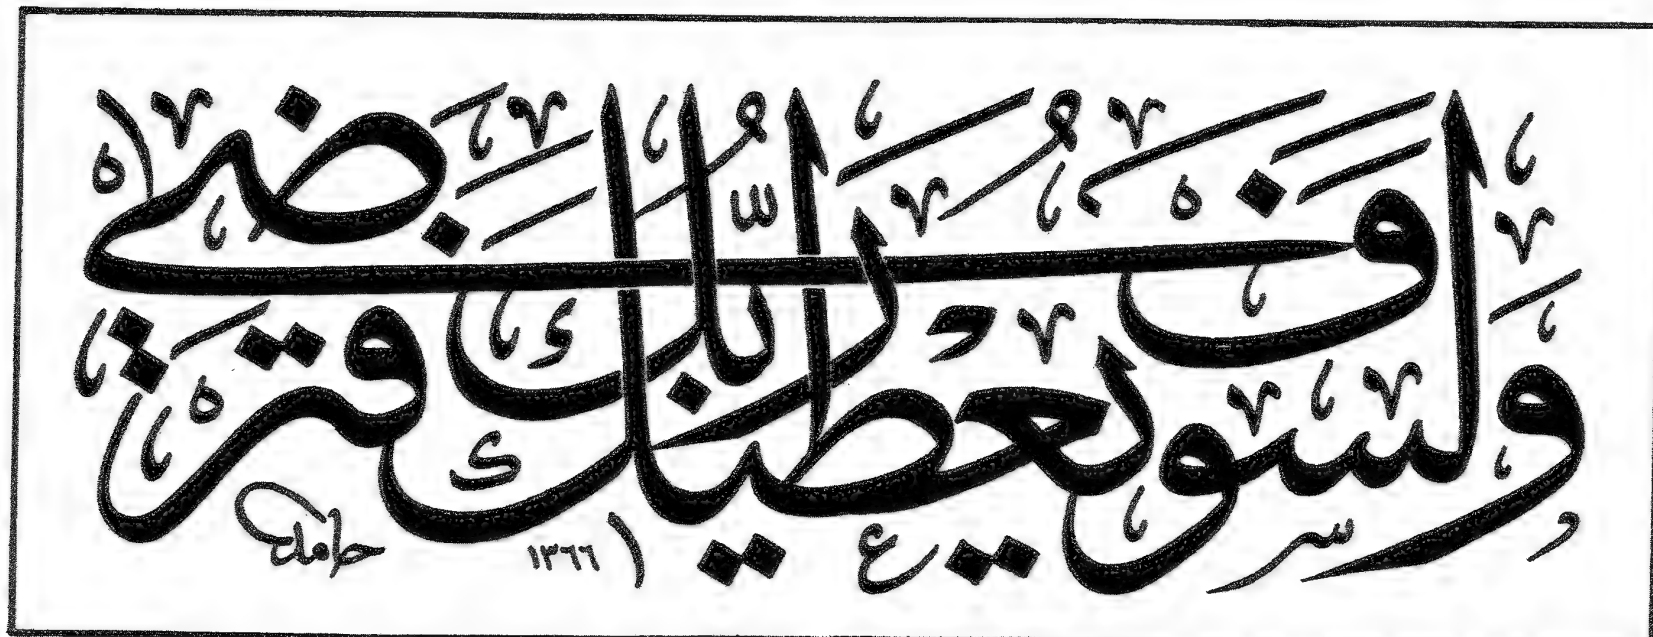 وَلَسَوْفَ يُعْطِيكَ رَبُّكَ فَتَرْضَى
حامد
١٣٦٦